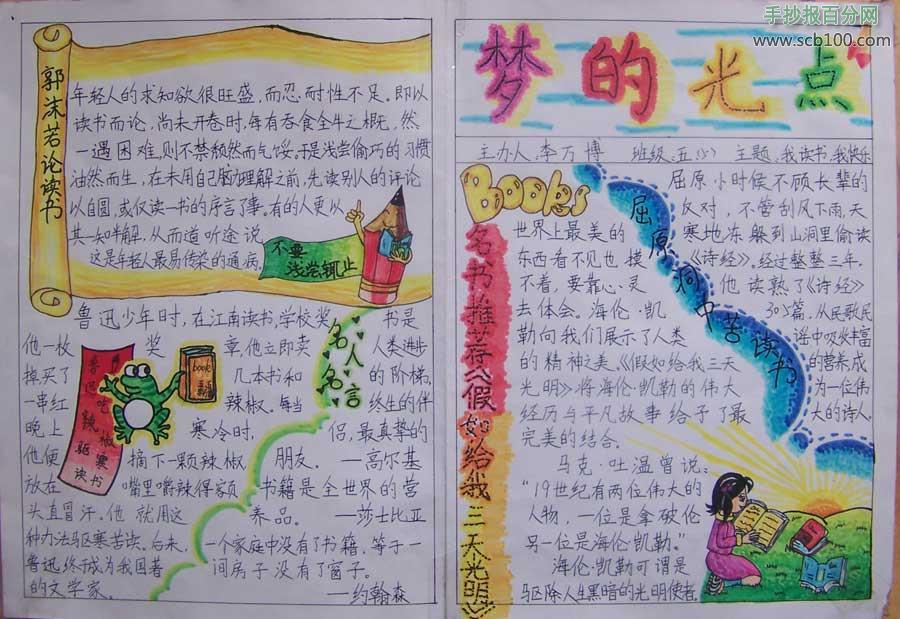 手抄报百分网
www.scb100.com
郭沫若论读书
年轻人的求知欲很旺盛,而忍耐性不足。即以
读书而论,尚未开卷时,每有吞食全牛之概,然
一遇困难,则不禁颓然而气馁,于是浅尝偷巧的习惯
油然而生,在未用自己脑力理解之前,先读别人的评论
以自圆,或仅读一书的序言了事。有的人更以
其一知半解,从而道听途说
这是年轻人最易传染的通病。
不要
浅尝辄止
鲁迅少年时,在江南读书,学校奖
他一枚奖章,他立即卖
掉买了几本书和
一串红辣椒。每当
晚上寒冷时,
他便摘下一颗辣椒,
放在嘴里嚼辣得客页
头直冒汗。他就用这
种办法驱寒苦读。后来,
鲁迅终于成为我国著
的文学家。
鲁迅吃辣椒驱寒读书
book
名人名言
书是
人类进步
的阶梯,
终生的伴
侣,最真挚的
朋友。—高尔基
书籍是全世界的营
养品。—莎士比亚
一个家庭中没有了书籍,等于一
间房子没有了窗子。
—约翰森
梦的光点
主办人:李万博 班级:五(5) 主题:我读书,我快乐
Books
名书推荐《假如给我三天光明》
世界上最美的
东西看不见也摸
不着,要靠心灵
去体会。海伦·凯
勒向我们展示了人类
的精神之美。《假如给我三天
光明》将海伦·凯勒的伟大
经历与平凡故事给予了最
完美的结合。
马克·吐温曾说:
“19世纪有两位伟大的
人物,一位是拿破伦
另一位是海伦·凯勒。”
海伦·凯勒可谓是
驱除人生黑暗的光明使者。
屈原洞中苦读书
屈原小时候不顾长辈的
反对,不管刮风下雨,天
寒地冻躲到山洞里偷读
《诗经》。经过整整三年。
他读熟了《诗经》
305篇,从民歌民
谣中吸收丰富
的营养,成
为一位伟
大的诗人。